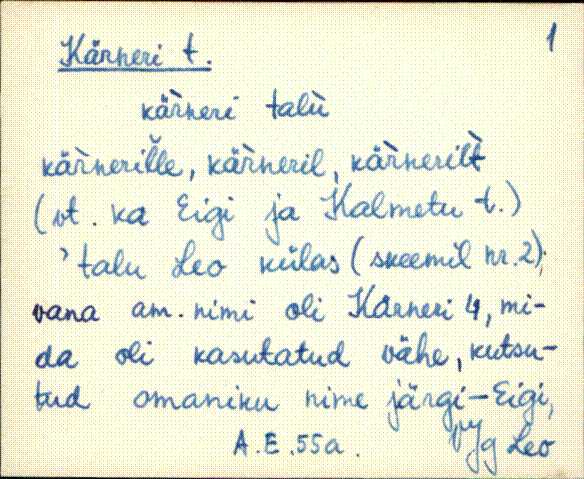 1
Kärneri t.
kär̀neri talù
kär̀nerĭlle, kär̀neril, kär̀nerilt̀
(vt. ka Eigi ja Kalmetu t.)
’talu Leo külas (skeemil nr. 2);
vana am. nimi oli Kärneri 4, mi-
da oli kasutatud vähe, kutsu-
tud omaniku nime järgi – Eigi,
A.E. 55a. Vjg Leo